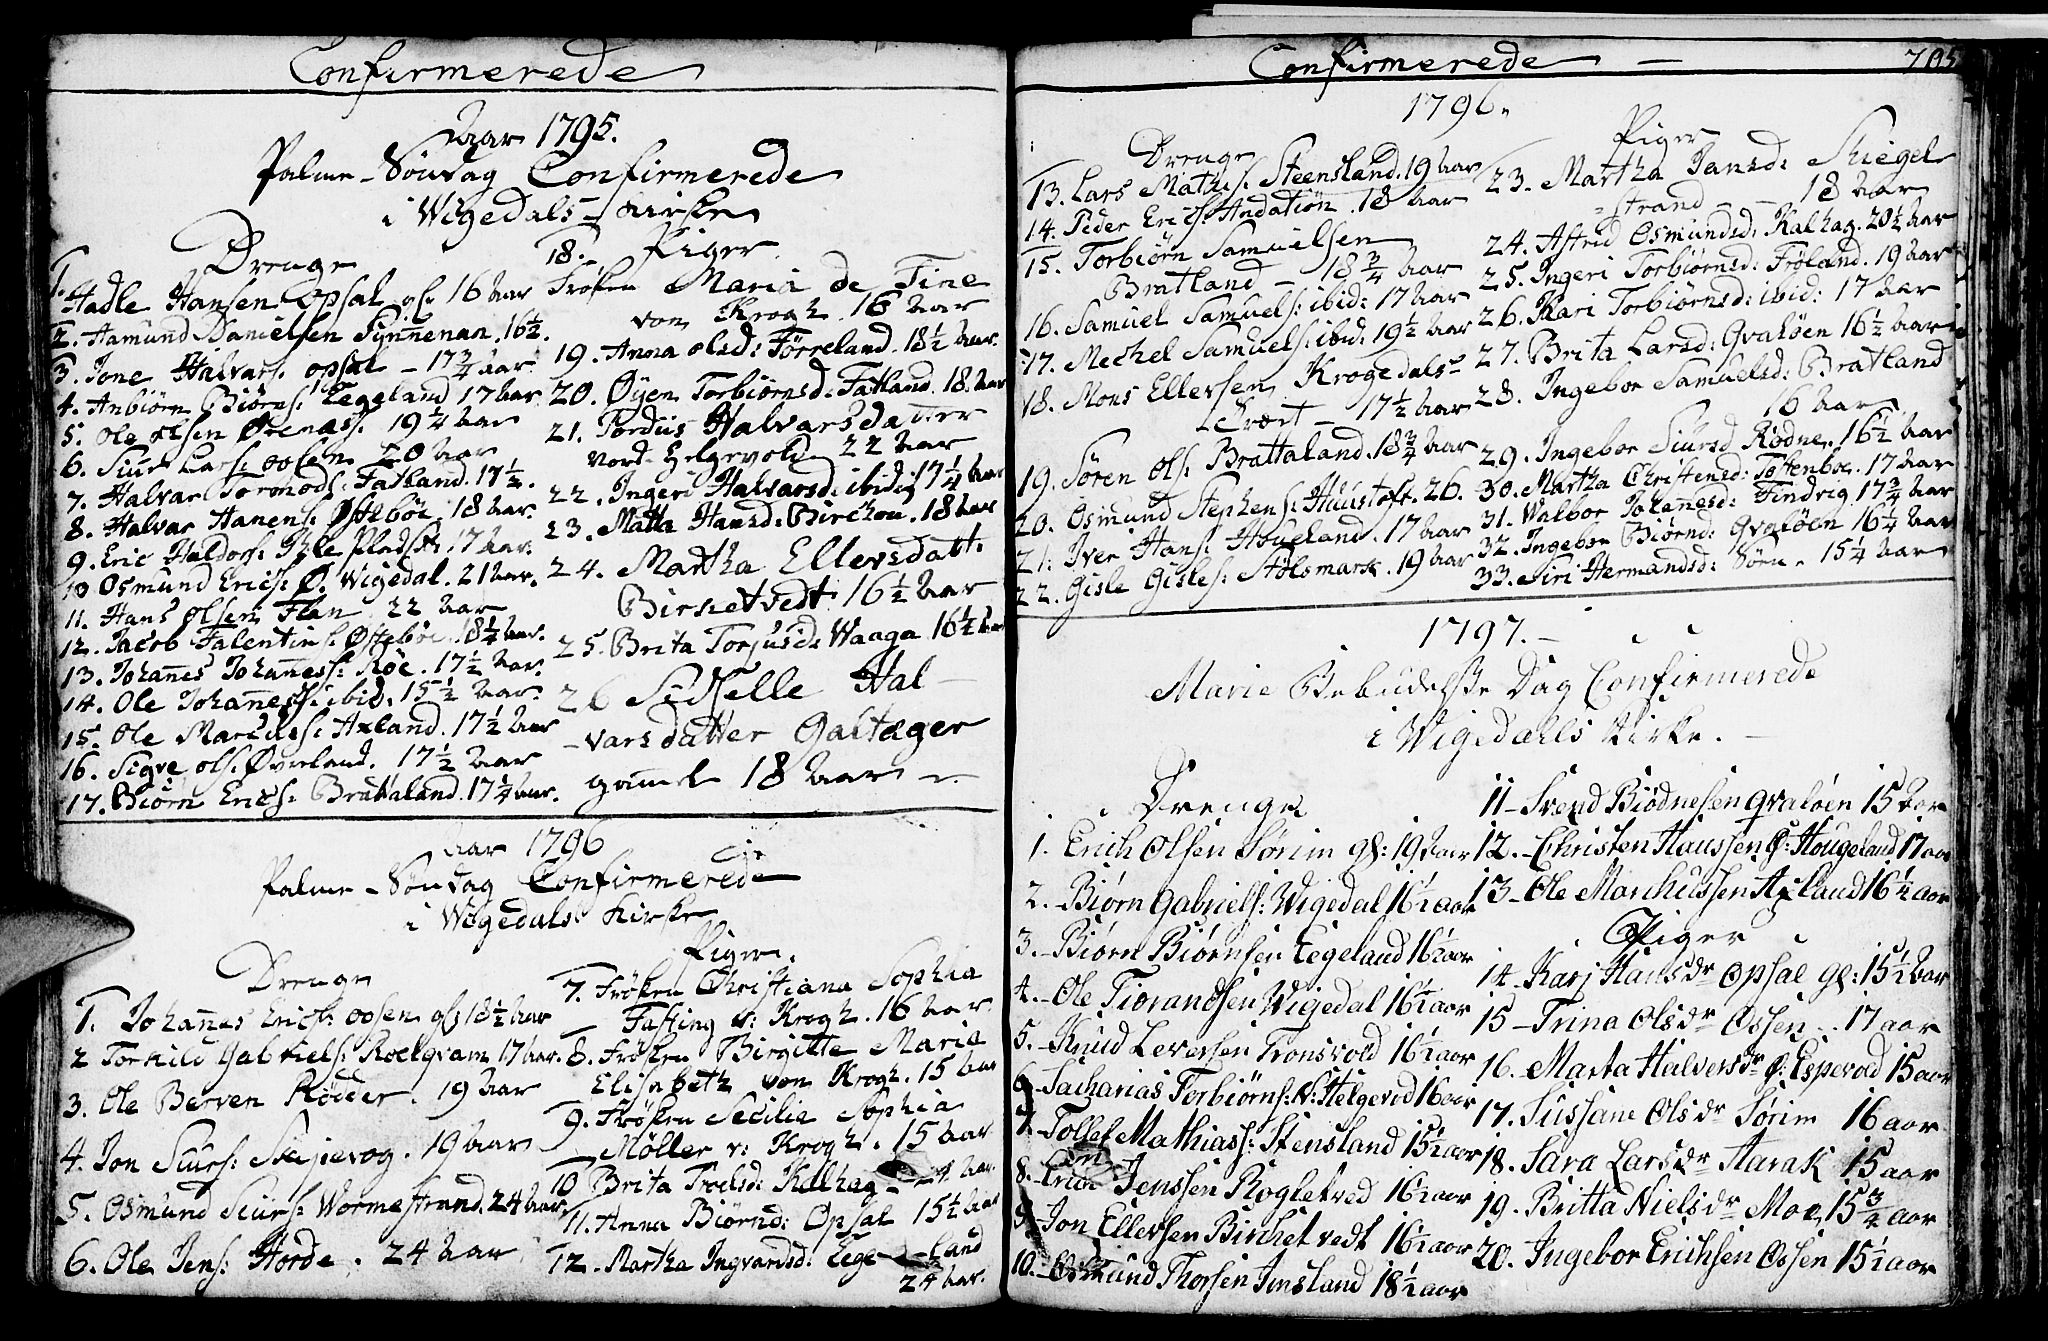 Confirmerede
Aar 1795.
Palme-Søndag Confirmerede
i Wigedals Kirke
Drenge
1. Hadle Hansen Opsal gl. 16 Aar
2. Aamund Danielsen Synnenan. 16½.
3. Jone Halvars: Opsal - 17¾ aar.
4. Anbiørn Biørns: Tegeland 17 Aar
5. Ole Olsen Ørenæs: 19¼ Aar
6. Siur Lars: Ossen 20 Aar
7. Halvar Tormods: Fatland. 17½.
8. Halvar Hanens: Østebøe. 18 Aar.
9. Eric Haldors: Pladset. 17 Aar.
10 Osmund Erics: Ø. Wigedal. 21 Aar.
11. Hans Olsen Flan 22 Aar
12. Jacob Falentins: Østebøe. 18¼ Aar.
13. Johannes Johanness: Røe. 17½ Aar.
14. Ole Johanness: ibid. 15½ Aar.
15. Ole Marcuss: Axland. 17½ Aar
16. Sigve Ols: Øverland. 17½ Aar
17. Biørn Erics: Brattaland. 17¼ Aar.
Piger
18. Frøken Maria de Fine
von Krogh. 16 Aar
19. Anna Olsd: Førreland. 18½ Aar.
20. Øyen Torbiørnsd: Fatland. 18. Aar
21. Tordiis Halvarsdatter
Nord-Helgevold 22 Aar
22. Ingeri Halvarsd: ibid: 17¼ Aar
23. Matta Hansd: Birchou. 18 Aar
24. Martha Ellevsdatt:
Birketvedt 16½ Aar
25. Brita Torjusd: Waaga 16½ Aar
26 Sidselle Hal-
-varsdatter Galtager
gamel 18 Aar
Aar 1796
Palme-Søndag Confirmerede
i Wigedals Kirke
Drenge
1. Johannes Erics: Ossen gl: 18½ Aar
2 Torkild Gabriels: Roelqvam 17 Aar.
3. Ole Berven Rødder. 19 Aar
4. Jon Siurs: Skeievog. 19 Aar
5. Osmund Siurs: Wormestrand. 24 Aar
6. Ole Jens: Horde. 24 Aar
Piger.
7. Frøken Christiana Sophia
Fasting v: Krogh. 16 Aar.
8. Frøken Birgitte Marie
Elisabeth von Krogh. 15 Aar
9. Frøken Secilie Sophia
Møller v: Krogh. 15 Aar
10 Brita Troelsd: Kalhag Aar
11. Anna Biørnd: Opsal 15½ Aar
12. Martha Ingvarsd: Tege-land
24 Aar.
Confirmerede 705
1796.
Drenge
13. Lars Mathis: Steensland. 19 Aar
14. Peder Erics: Andatiøn. 18 Aar
15. Torbiørn Samuelsen
Bratland - 18¾ Aar
16. Samuel Samuels: ibid: 17 Aar
17. Mechel Samuels: ibid: 19½ Aar
18. Mons Ellevsen Krogedals-
17½ Aar
19. Sören Ols: Brattaland. 18¾ Aar
20. Osmund Stephens: Huustoft. 26.
21. Iver Hans: Houeland. 17 Aar
22. Gisle Gisles: Stølsmark. 19 Aar
Piger
23. Martha Jansd: Skiegel-
-strand - 18 Aar
24. Astrid Osmundsd: Kalhag. 20½ Aar
25. Ingeri Torbiørnsd: Frøland. 19 Aar
26. Kari Torbiørnsd: ibid: 17 Aar
27. Brita Larsd: Qvaløen 16½ Aar
28. Ingebor Samuelsd: Bratland
16 Aar
29. Ingebor Siursd Rødne. 16½ Aar
30. Martha Christensd: Toftenboe. 17 Aar
31. Walbor Johannesd: Findrig. 17¾ Aar
32. Ingebor Biørnd: Qvaløen 16¼ Aar
33. Siri Hermandsd: Sørn. 15¼ Aar
1797.
Marie Bebudelses Dag Confirmerede
i Wigedalls Kirke.
Drenge
1. Erich Olsen Sørim gl: 19 Aar
2. Biørn Gabriels: Wigedal 16½ aar
3. Biørn Biørnsen Tegeland 16½ aar
4. Ole Tiorandsen Wigedal 16½ aar
5. Knud Leversen Tronsvold 16½ aar
6. Sacharias Torbiørns: N: Helgevod 16 aar
7. Tollef Mathiass: Stensland 15½ aar
8. Jenssen Rogletved 16½ aar
9. Jon Ellevsen Birchetvedt 16½ aar
10. Osmund Thorsen Imsland 18½ aar
11 Svend Biødnesen Qvaløen 15 Aar
12. Christen Hanssen Ø: Hougeland 17 aar
13. Ole Marchussen Axland 16¼ aar
Piger
14 Karj Hansdr Opsal gl: 15½ Aar
15 Trina Olsdr Ossen 17 aar
16. Marta Halversdr Ø: Espevold 15 aar
17. Sussane Olsdr Sørim 16 aar
18. Sara Larsdr Aarak 15 aar
19. Britta Nielsdr Moe 15¾ aar
20. Ingebor Erichsen Ossen 15½ aar